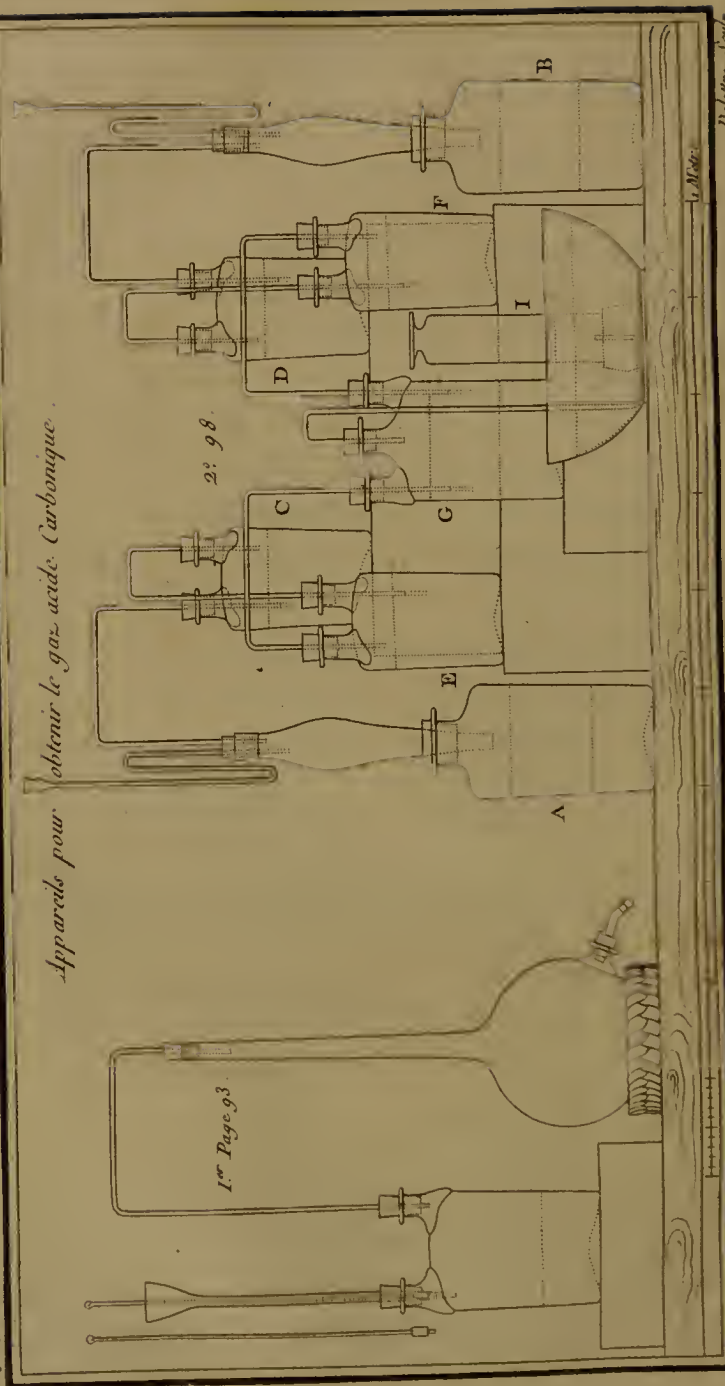 Appareils pour obtenir le gaz acide Carbonique.
1.er Page 93.
2.e 98.
A
E
C
G
D
I
F
B
1 Metre